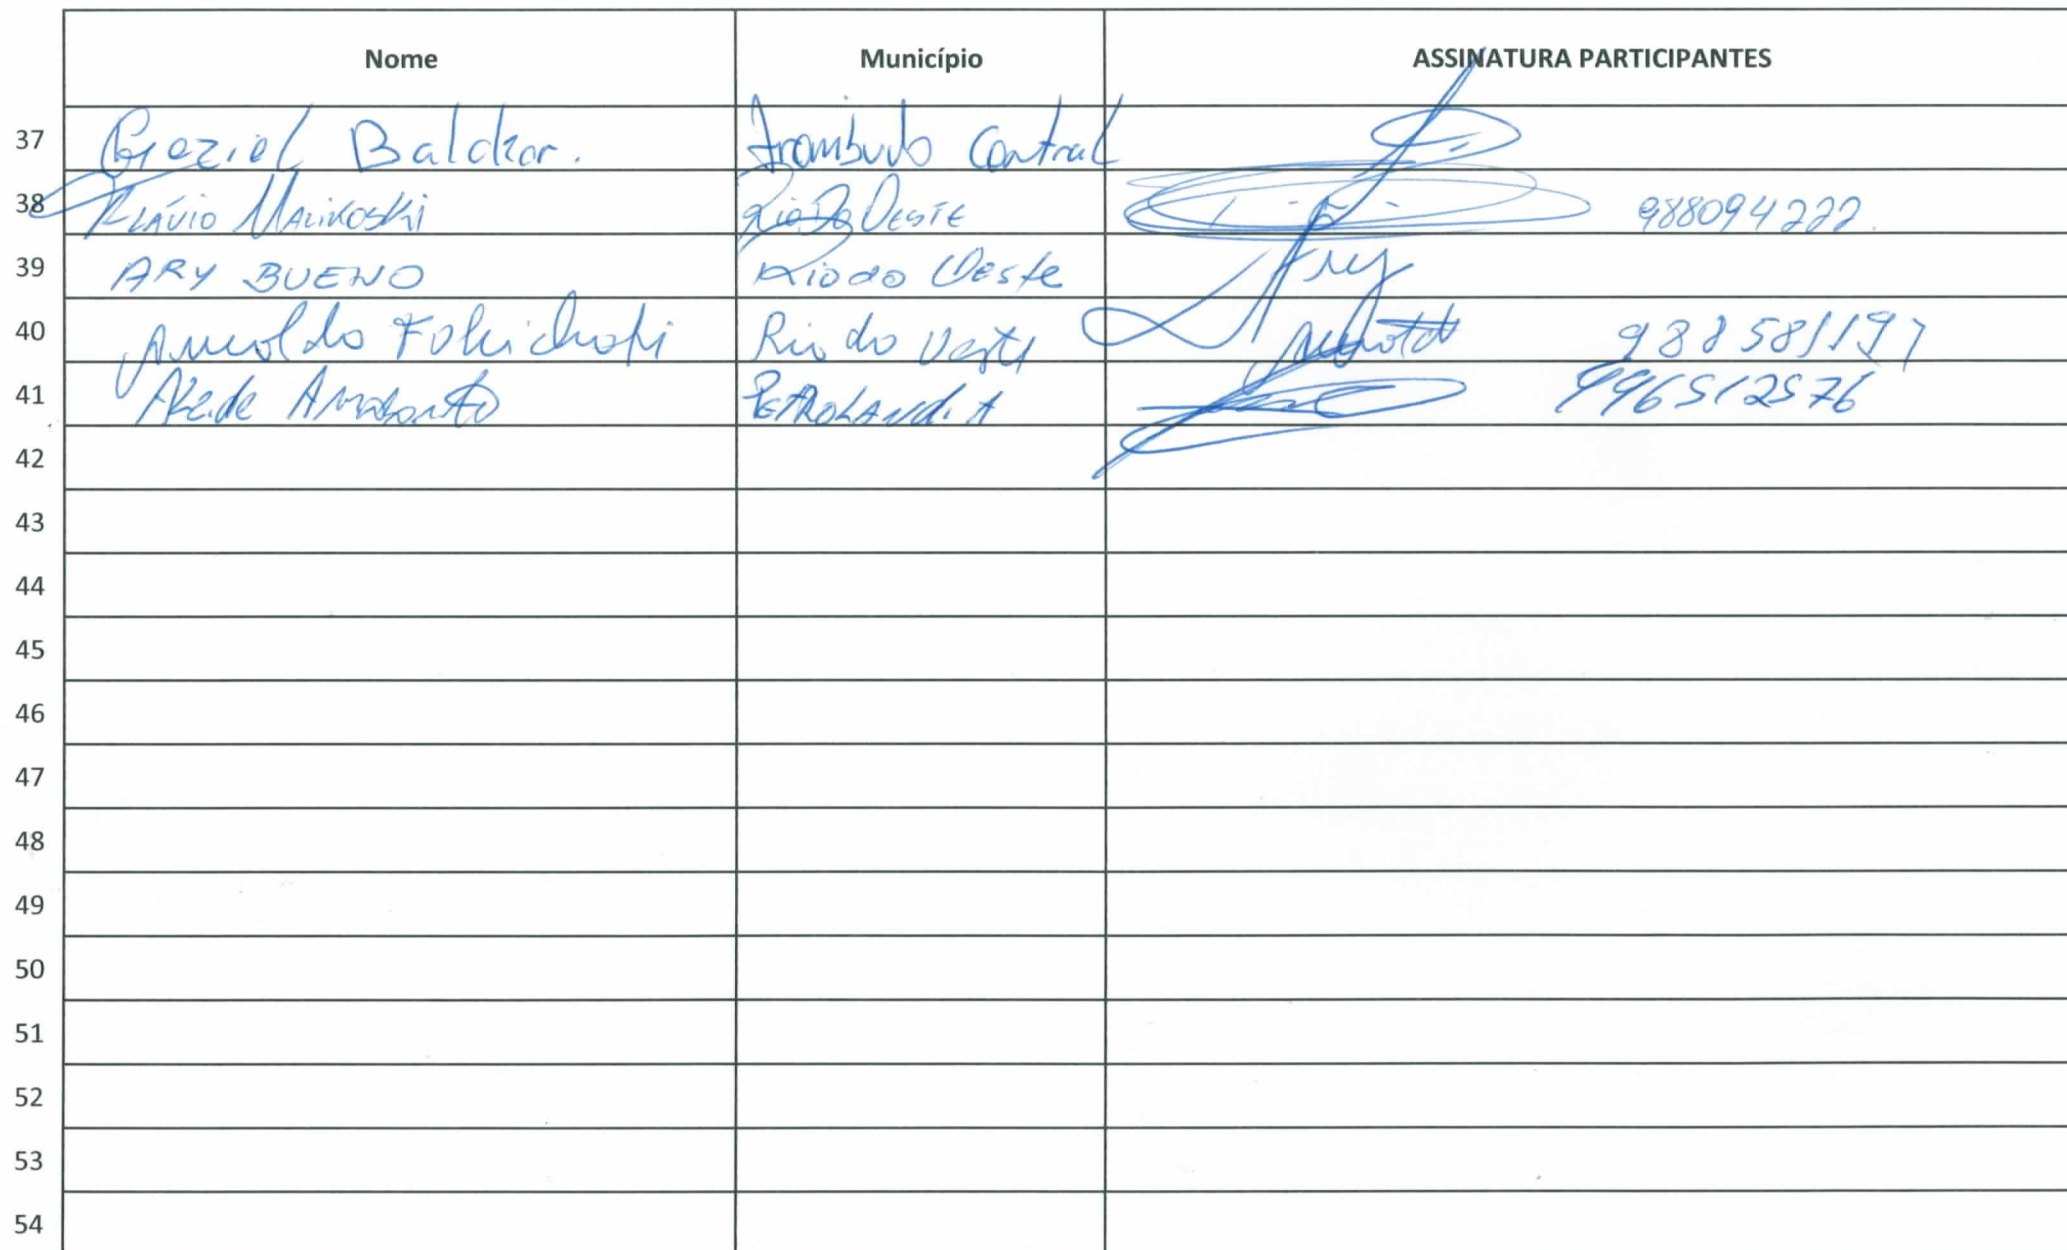 Nome Município ASSINATURA PARTICIPANTES
37 Geziel Baldkar. Trombudo Central
38 Flávio Malikoski Rio Do Oeste 988094222.
39 ARY BUENO Rio do Oeste Ary
40 Arnoldo Rio do Oeste 988581197
41 PETROLANDIA 996512576
42
43
44
45
46
47
48
49
50
51
52
53
54